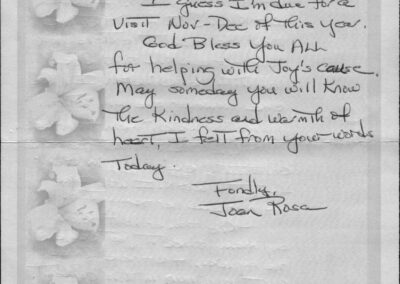 I guess I'm due for a
visit Nov-Dec of this year.
God Bless You All
for helping with Joy's cause.
May someday you will know
the kindness and warmth of
heart, I felt from your words
Today.
Fondly,
Joan Rosa